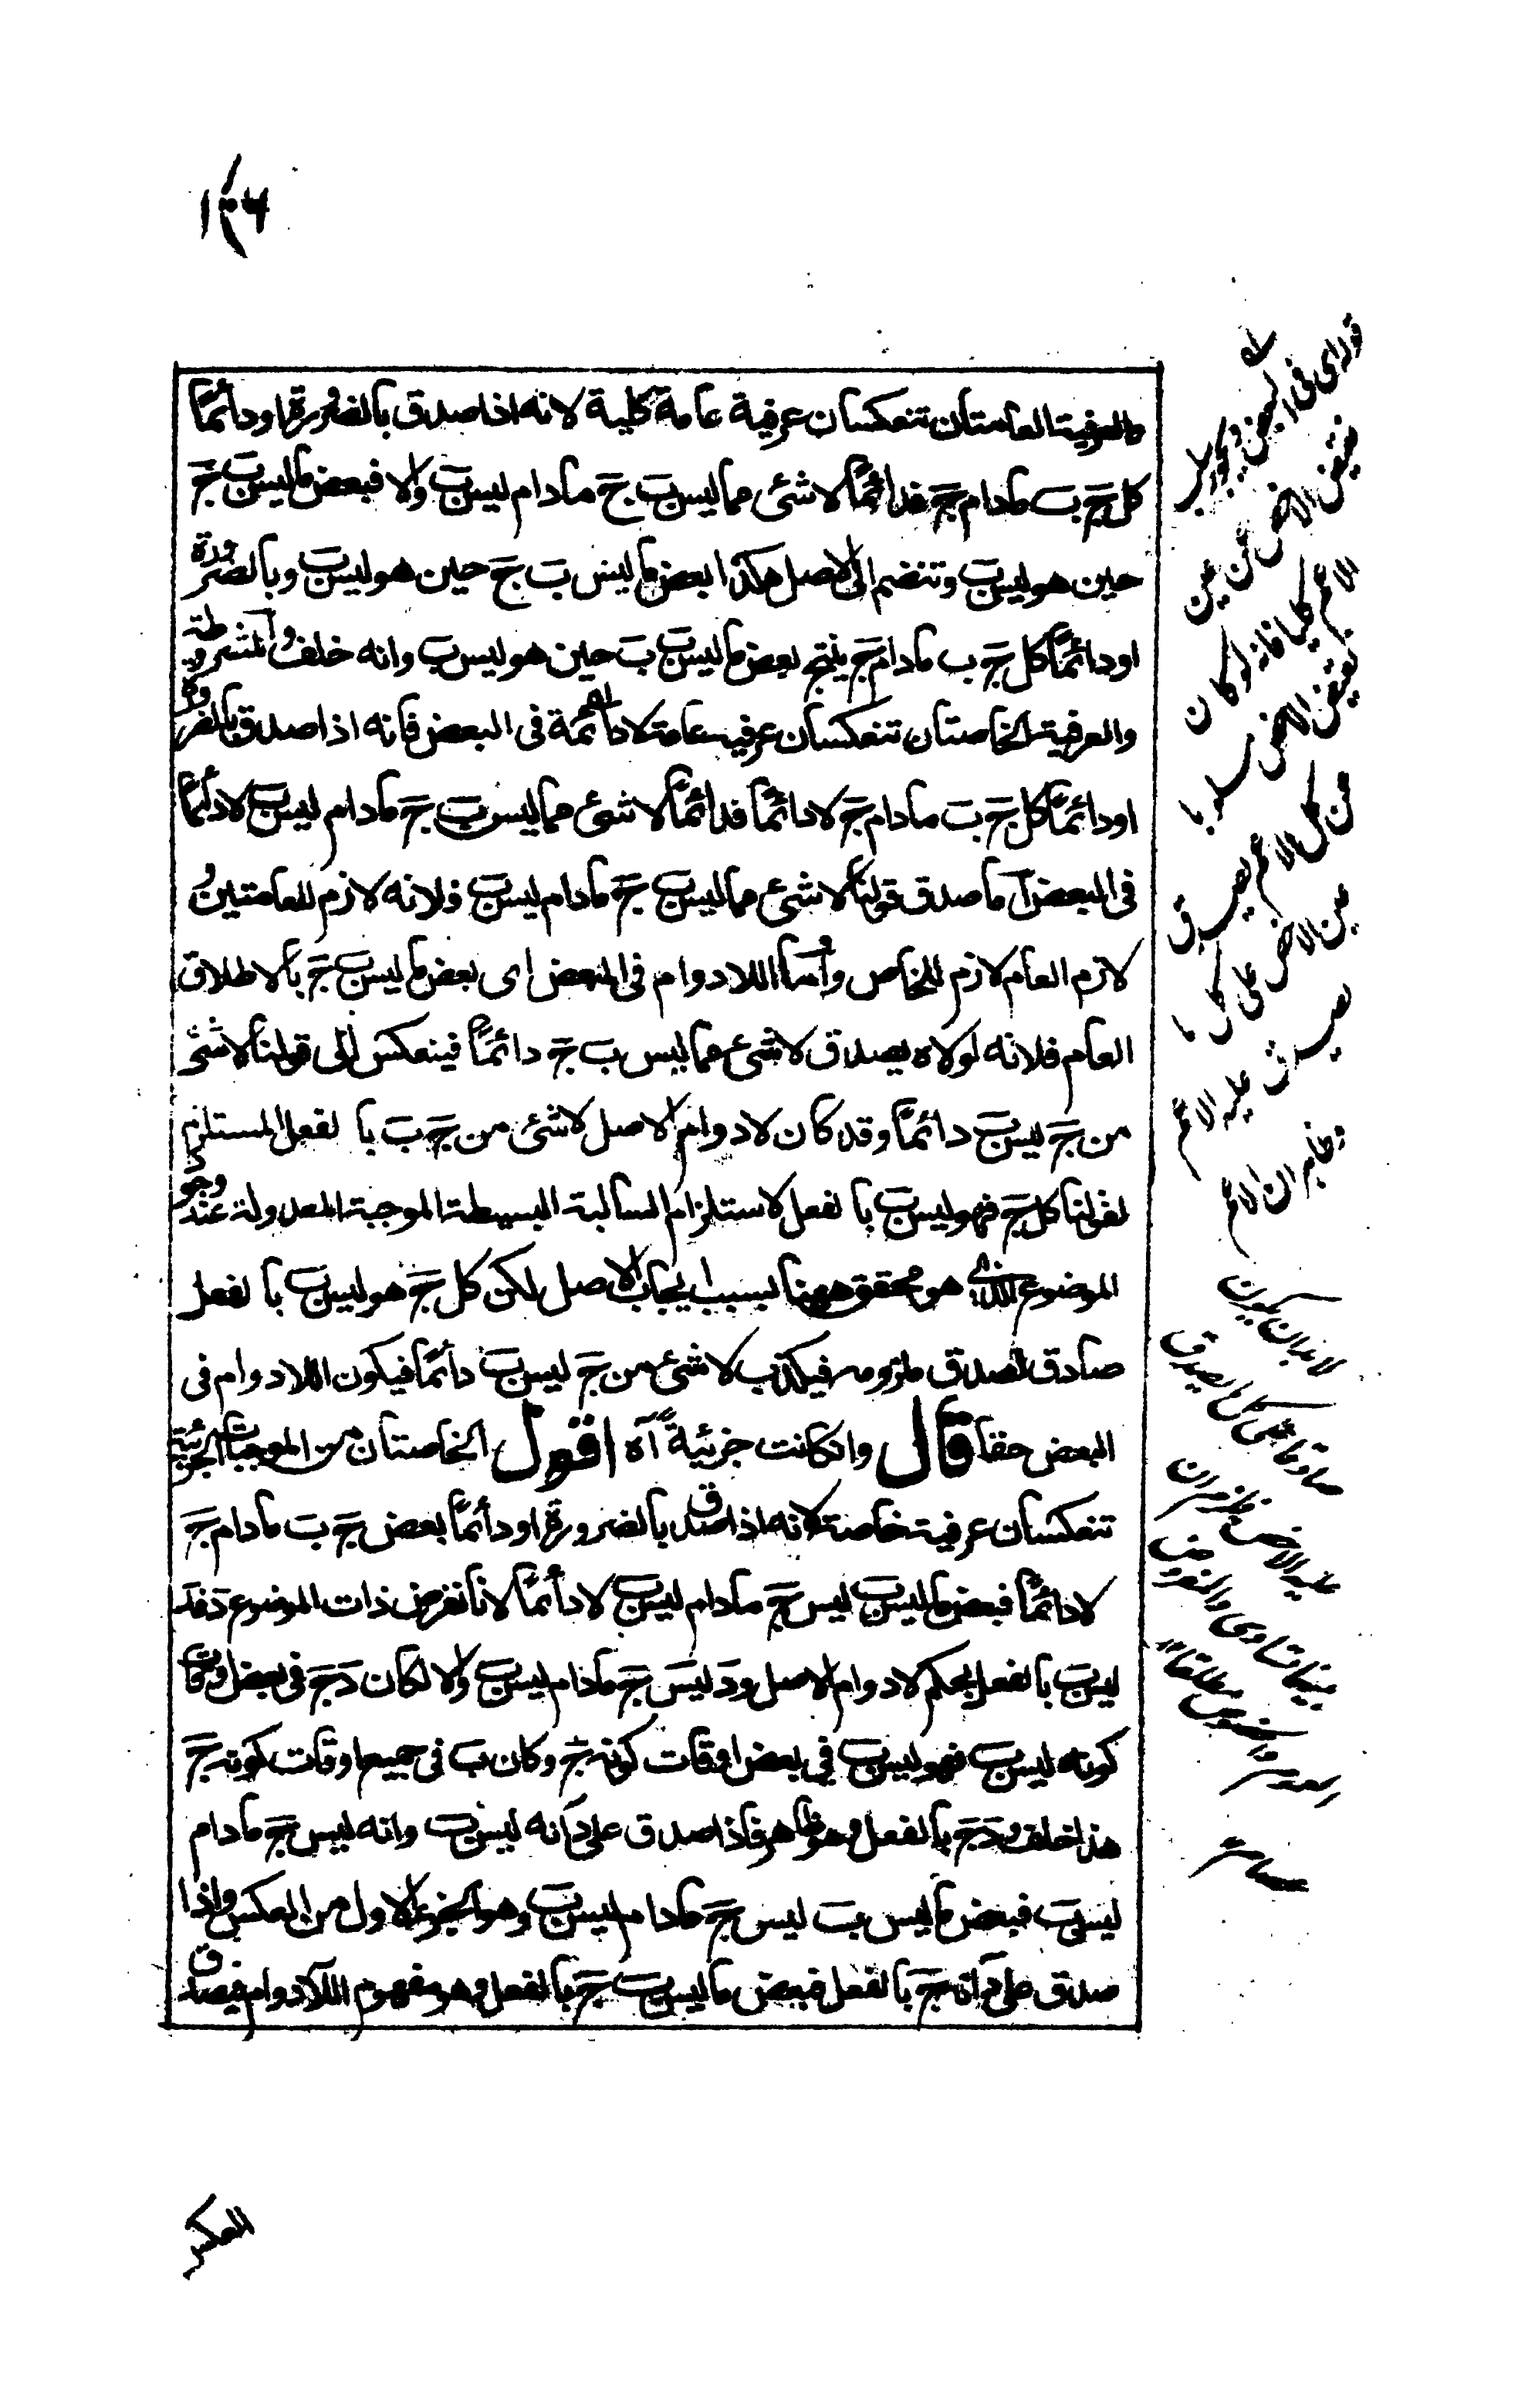 ١٣٦
والعرفية العامتان تنعكسان عرفية عامة كلية لانه اذا صدق بالضرورة او دائمًا
كل ج ب مادام ج فدائمًا لا شئ مما ليس ب ج مادام ليس ب والا فبعض ما ليس ب ج
حين هو ليس ب وتنضم الى الاصل هكذا بعض ما ليس ب ج حين هو ليس ب وبالضرورة
او دائمًا كل ج ب مادام ج ينتج بعض ما ليس ب ب حين هو ليس ب وانه خلف والمشروطة
والعرفية الخاصتان تنعكسان عرفية عامة لا دائمة فى البعض فانه اذا صدق بالضرورة
او دائمًا كل ج ب مادام ج لا دائمًا فدائمًا لا شئ مما ليس ب ج مادام ليس ب لا دائمًا
فى البعض اما صدق قولنا لا شئ مما ليس ب ج مادام ليس ب فلانه لازم للعامتين و
لازم العام لازم للخاص واما اللادوام فى البعض اى بعض ما ليس ب ج بالاطلاق
العام فلانه لولاه يصدق لا شئ مما ليس ب ج دائمًا فينعكس الى قولنا لا شئ
من ج ليس ب دائمًا وقد كان لا دوام الاصل لا شئ من ج ب بالفعل المستلزم
لقولنا كل ج فهو ليس ب بالفعل لاستلزام السالبة البسيطة الموجبة المعدولة عند وجود
الموضوع الذى هو محقق ههنا بسبب ايجاب الاصل لكن كل ج هو ليس ب بالفعل
صادق لصدق ملزومه فيكذب لا شئ من ج ليس ب دائمًا فيكون اللادوام فى
البعض حقا قال وان كانت جزئية آه اقول الخاصتان من الموجبات الجزئية
تنعكسان عرفية خاصة لانه اذا صدق بالضرورة او دائمًا بعض ج ب مادام ج
لا دائمًا فبعض ما ليس ب ليس ج مادام ليس ب لا دائمًا لانا نفرض ذات الموضوع د فد
ليس ب بالفعل بحكم لا دوام الاصل ود ليس ج مادام ليس ب والا لكان د ج فى بعض اوقات
كونه ليس ب فهو ليس ب فى بعض اوقات كونه ج وكان ب فى جميع اوقات كونه ج
هذا خلف ود ج بالفعل وهو ظاهر فاذا صدق على د انه ليس ب وانه ليس ج مادام
ليس ب فبعض ما ليس ب ليس ج مادام ليس ب وهو الجزء الاول من العكس واذا
صدق على د انه ج بالفعل فبعض ما ليس ب ج بالفعل وهو مفهوم اللادوام فيصدق
نقيض الاخص عن عين
الاعم كليا فانه لو كان
نقيض الاخص مسلوبا
عن كل الاعم يصدق
عين الاخص على كل ما
يصدق عليه الاعم
العكس